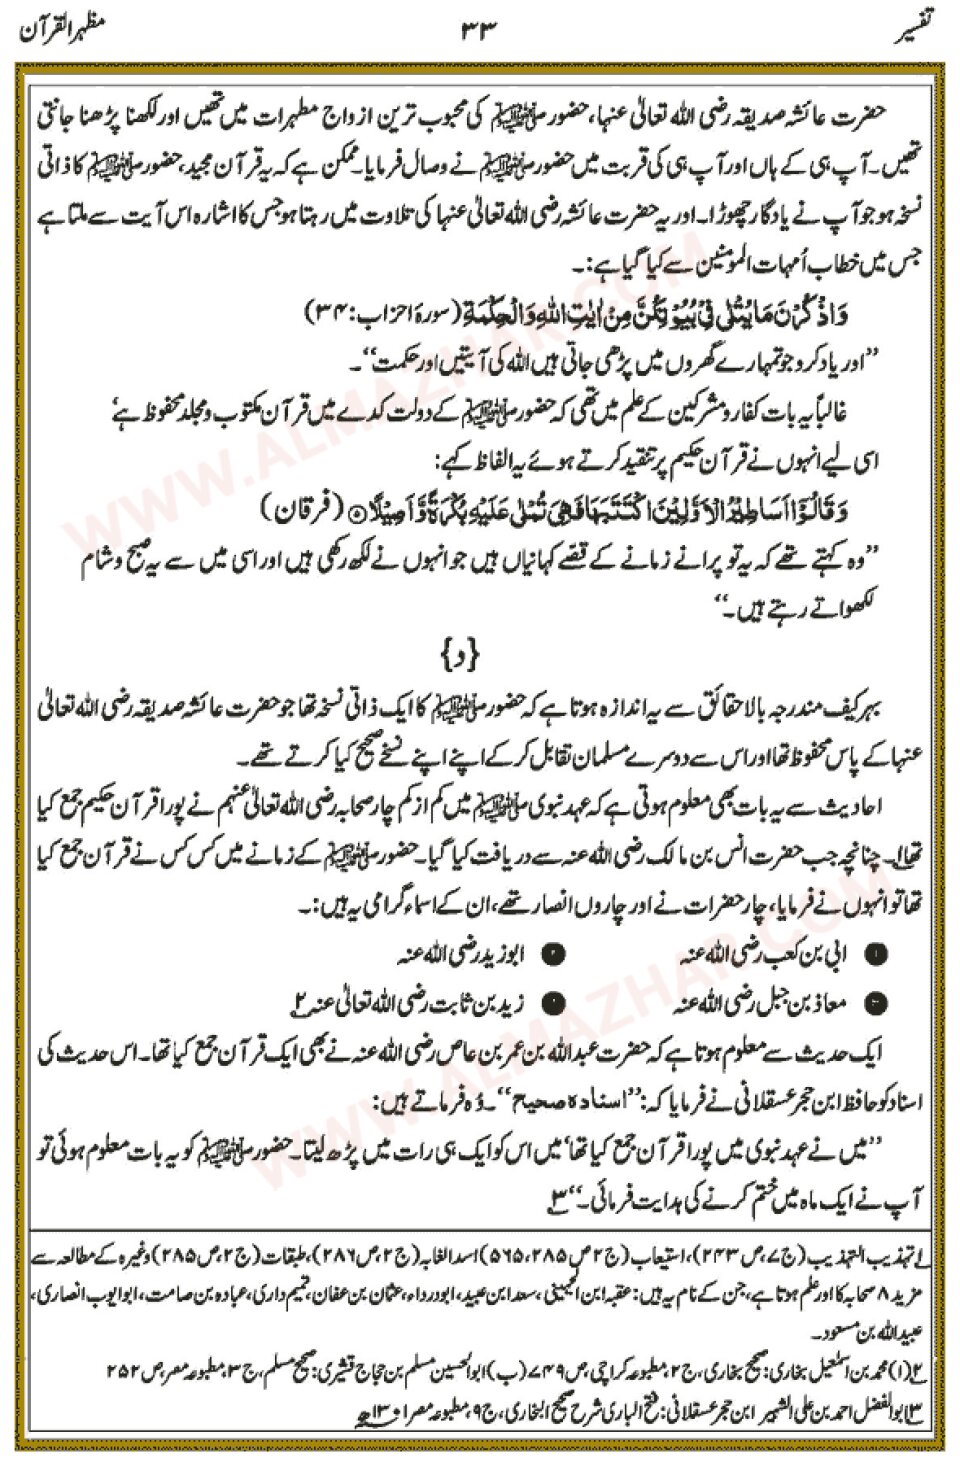 تفسیر ۳۳ مظہر القرآن
حضرت عائشہ صدیقہ رضی اللہ تعالیٰ عنہا، حضور ﷺ کی محبوب ترین ازواج مطہرات میں تھیں اور لکھنا پڑھنا جانتی
تھیں۔ آپ ہی کے ہاں اور آپ ہی کی قربت میں حضور ﷺ نے وصال فرمایا۔ ممکن ہے کہ یہ قرآن مجید، حضور ﷺ کا ذاتی
نسخہ ہو جو آپ نے یادگار چھوڑا۔ اور یہ حضرت عائشہ رضی اللہ تعالیٰ عنہا کی تلاوت میں رہتا ہو جس کا اشارہ اس آیت سے ملتا ہے
جس میں خطاب اُمہات المومنین سے کیا گیا ہے:۔
وَاذْكُرْنَ مَا يُتْلٰى فِىْ بُيُوْتِكُنَّ مِنْ اٰيٰتِ اللّٰهِ وَالْحِكْمَةِ (سورۂ احزاب: ۳۴)
’’اور یاد کرو جو تمہارے گھروں میں پڑھی جاتی ہیں اللہ کی آیتیں اور حکمت‘‘۔
غالباً یہ بات کفار و مشرکین کے علم میں تھی کہ حضور ﷺ کے دولت کدے میں قرآن مکتوب و مجلد محفوظ ہے‘
اسی لیے انہوں نے قرآن حکیم پر تنقید کرتے ہوئے یہ الفاظ کہے:
وَقَالُوْٓا اَسَاطِيْرُ الْاَوَّلِيْنَ اكْتَتَبَهَا فَهِىَ تُمْلٰى عَلَيْهِ بُكْرَةً وَّاَصِيْلًا ۝ (فرقان)
’’وہ کہتے تھے کہ یہ تو پرانے زمانے کے قصے کہانیاں ہیں جو انہوں نے لکھ رکھی ہیں اور اسی میں سے یہ صبح و شام
لکھواتے رہتے ہیں۔‘‘
{و}
بہر کیف مندرجہ بالا حقائق سے یہ اندازہ ہوتا ہے کہ حضور ﷺ کا ایک ذاتی نسخہ تھا جو حضرت عائشہ صدیقہ رضی اللہ تعالیٰ
عنہا کے پاس محفوظ تھا اور اس سے دوسرے مسلمان تقابل کرکے اپنے اپنے نسخے صحیح کیا کرتے تھے۔
احادیث سے یہ بات بھی معلوم ہوتی ہے کہ عہد نبوی ﷺ میں کم از کم چار صحابہ رضی اللہ تعالیٰ عنہم نے پورا قرآن حکیم جمع کیا
تھا۱۔ چنانچہ جب حضرت انس بن مالک رضی اللہ عنہ سے دریافت کیا گیا۔ حضور ﷺ کے زمانے میں کس کس نے قرآن جمع کیا
تھا تو انہوں نے فرمایا، چار حضرات نے اور چاروں انصار تھے، ان کے اسماء گرامی یہ ہیں:۔
۱ ابی بن کعب رضی اللہ عنہ ۲ ابوزید رضی اللہ عنہ
معاذ بن جبل رضی اللہ عنہ زید بن ثابت رضی اللہ تعالیٰ عنہ ۲
ایک حدیث سے معلوم ہوتا ہے کہ حضرت عبداللہ بن عمر بن عاص رضی اللہ عنہ نے بھی ایک قرآن جمع کیا تھا۔ اس حدیث کی
اسناد کو حافظ ابن حجر عسقلانی نے فرمایا کہ: ’’اسنادہ صحیح‘‘۔ وُہ فرماتے ہیں:
’’میں نے عہد نبوی میں پورا قرآن جمع کیا تھا‘ میں اس کو ایک ہی رات میں پڑھ لیتا۔ حضور ﷺ کو یہ بات معلوم ہوئی تو
آپ نے ایک ماہ میں ختم کرنے کی ہدایت فرمائی۔‘‘ ۳
۱ تہذیب التہذیب (ج۷، ص۲۴۳)، استیعاب (ج۲ ص۲۸۵، ۵۶۵) اسد الغابہ (ج۲، ص۲۸۶)، طبقات (ج۲، ص۲۸۵) وغیرہ کے مطالعہ سے
مزید ۸ صحابہ کا اور علم ہوتا ہے، جن کے نام یہ ہیں: عقبہ ابن الجہینی، سعد ابن عبید، ابو درداء، عثمان بن عفان، تمیم داری، عبادہ بن صامت، ابو ایوب انصاری،
عبید اللہ بن مسعود۔
۲ (ا) محمد بن اسمٰعیل بخاری: صحیح بخاری، ج۲، مطبوعہ کراچی، ص۷۴۹ (ب) ابو الحسین مسلم بن حجاج قشیری: صحیح مسلم، ج۳، مطبوعہ مصر، ص۲۵۲
۳ ابو الفضل احمد بن علی الشہیر ابن حجر عسقلانی: فتح الباری شرح صحیح البخاری، ج۹، مطبوعہ مصر
WWW.ALMAZHAR.COM
WWW.ALMAZHAR.COM